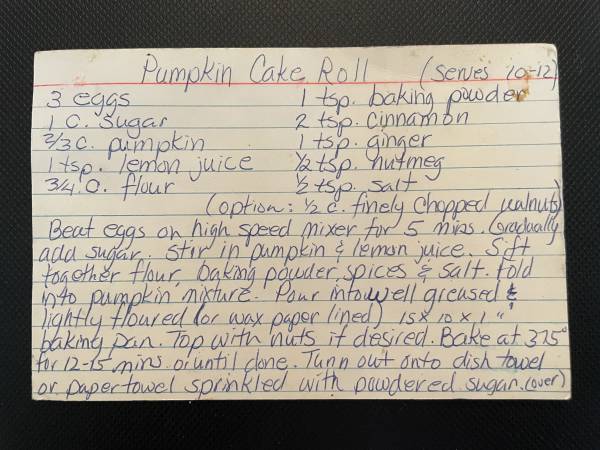 Pumpkin Cake Roll (serves 10-12)
3 eggs 1 tsp. baking powder
1 c. sugar 2 tsp. cinnamon
2/3 c. pumpkin 1 tsp. ginger
1 tsp. lemon juice 1/2 tsp. nutmeg
3/4 c. flour 1/2 tsp. salt
(option: 1/2 c. finely chopped walnuts)
Beat eggs on high speed mixer for 5 mins. Gradually
add sugar. Stir in pumpkin & lemon juice. Sift
together flour, baking powder, spices & salt. Fold
into pumpkin mixture. Pour into well greased &
lightly floured (or wax paper lined) 15 x 10 x 1"
baking pan. Top with nuts if desired. Bake at 375°
for 12-15 mins. or until done. Turn out onto dish towel
or paper towel sprinkled with powdered sugar. (over)